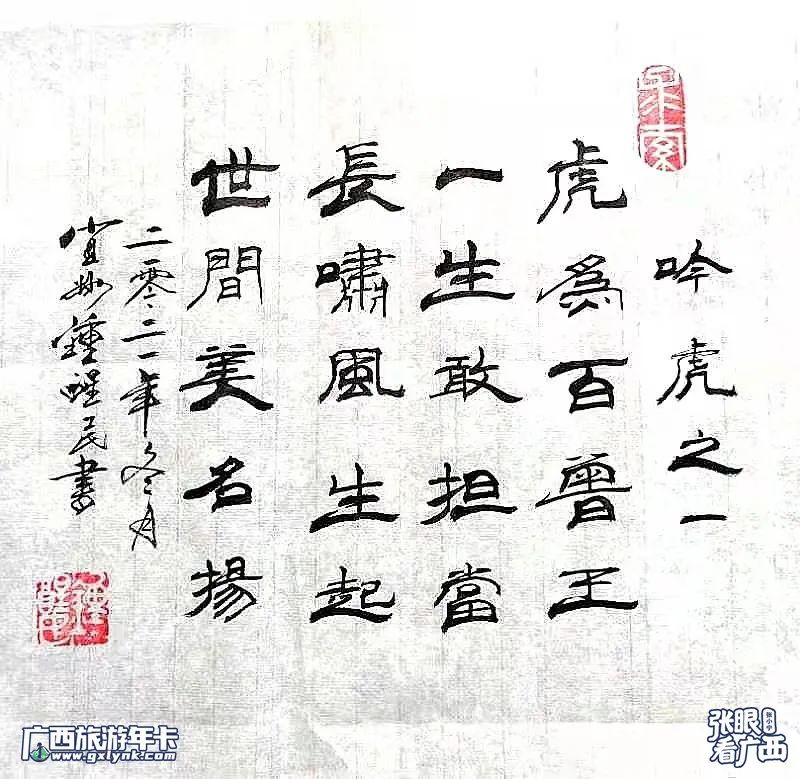 求索
吟虎之一
虎爲百兽王
一生敢担當
長嘯風生起
世間美名揚
二零二一年冬月
鍾醒民書
广西旅游年卡
www.gxlynk.com
张眼
看广西